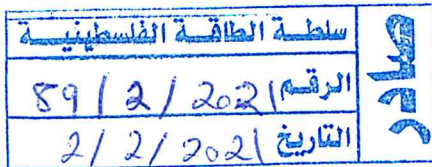 سلطة الطاقة الفلسطينية
الرقم 89/2/2021
التاريخ 2/2/2021
صادر